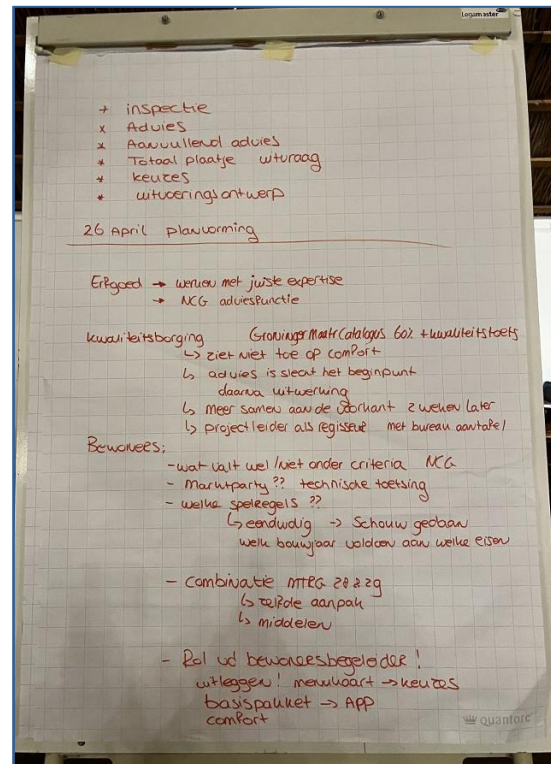 Legamaster
+ inspectie
x Advies
* Aanvullend advies
* Totaal plaatje uitvraag
* keuzes
* uitvoeringsontwerp
26 April planvorming
Erfgoed → werken met juiste expertise
→ NCG adviesfunctie
kwaliteitsborging Groninger Maatr Catalogus 60% + kwaliteitstoets
↳ ziet niet toe op comfort
↳ advies is slecht het beginpunt
daarna uitwerking
↳ meer samen aan de voorkant 2 weken later
↳ projectleider als regisseur met bureau aantafel
Bewoners:
- wat valt wel/niet onder criteria NCG
- Marktparty ?? technische toetsing
- welke spelregels ??
↳ eenduidig → Schouw gedaan
welk bouwjaar voldoen aan welke eisen
- combinatie MTRG 28 & 29
↳ zelfde aanpak
↳ middelen
- Rol vd bewonersbegeleider !
uitleggen! menukaart → keuzes
basispakket → APP
comfort
quantore